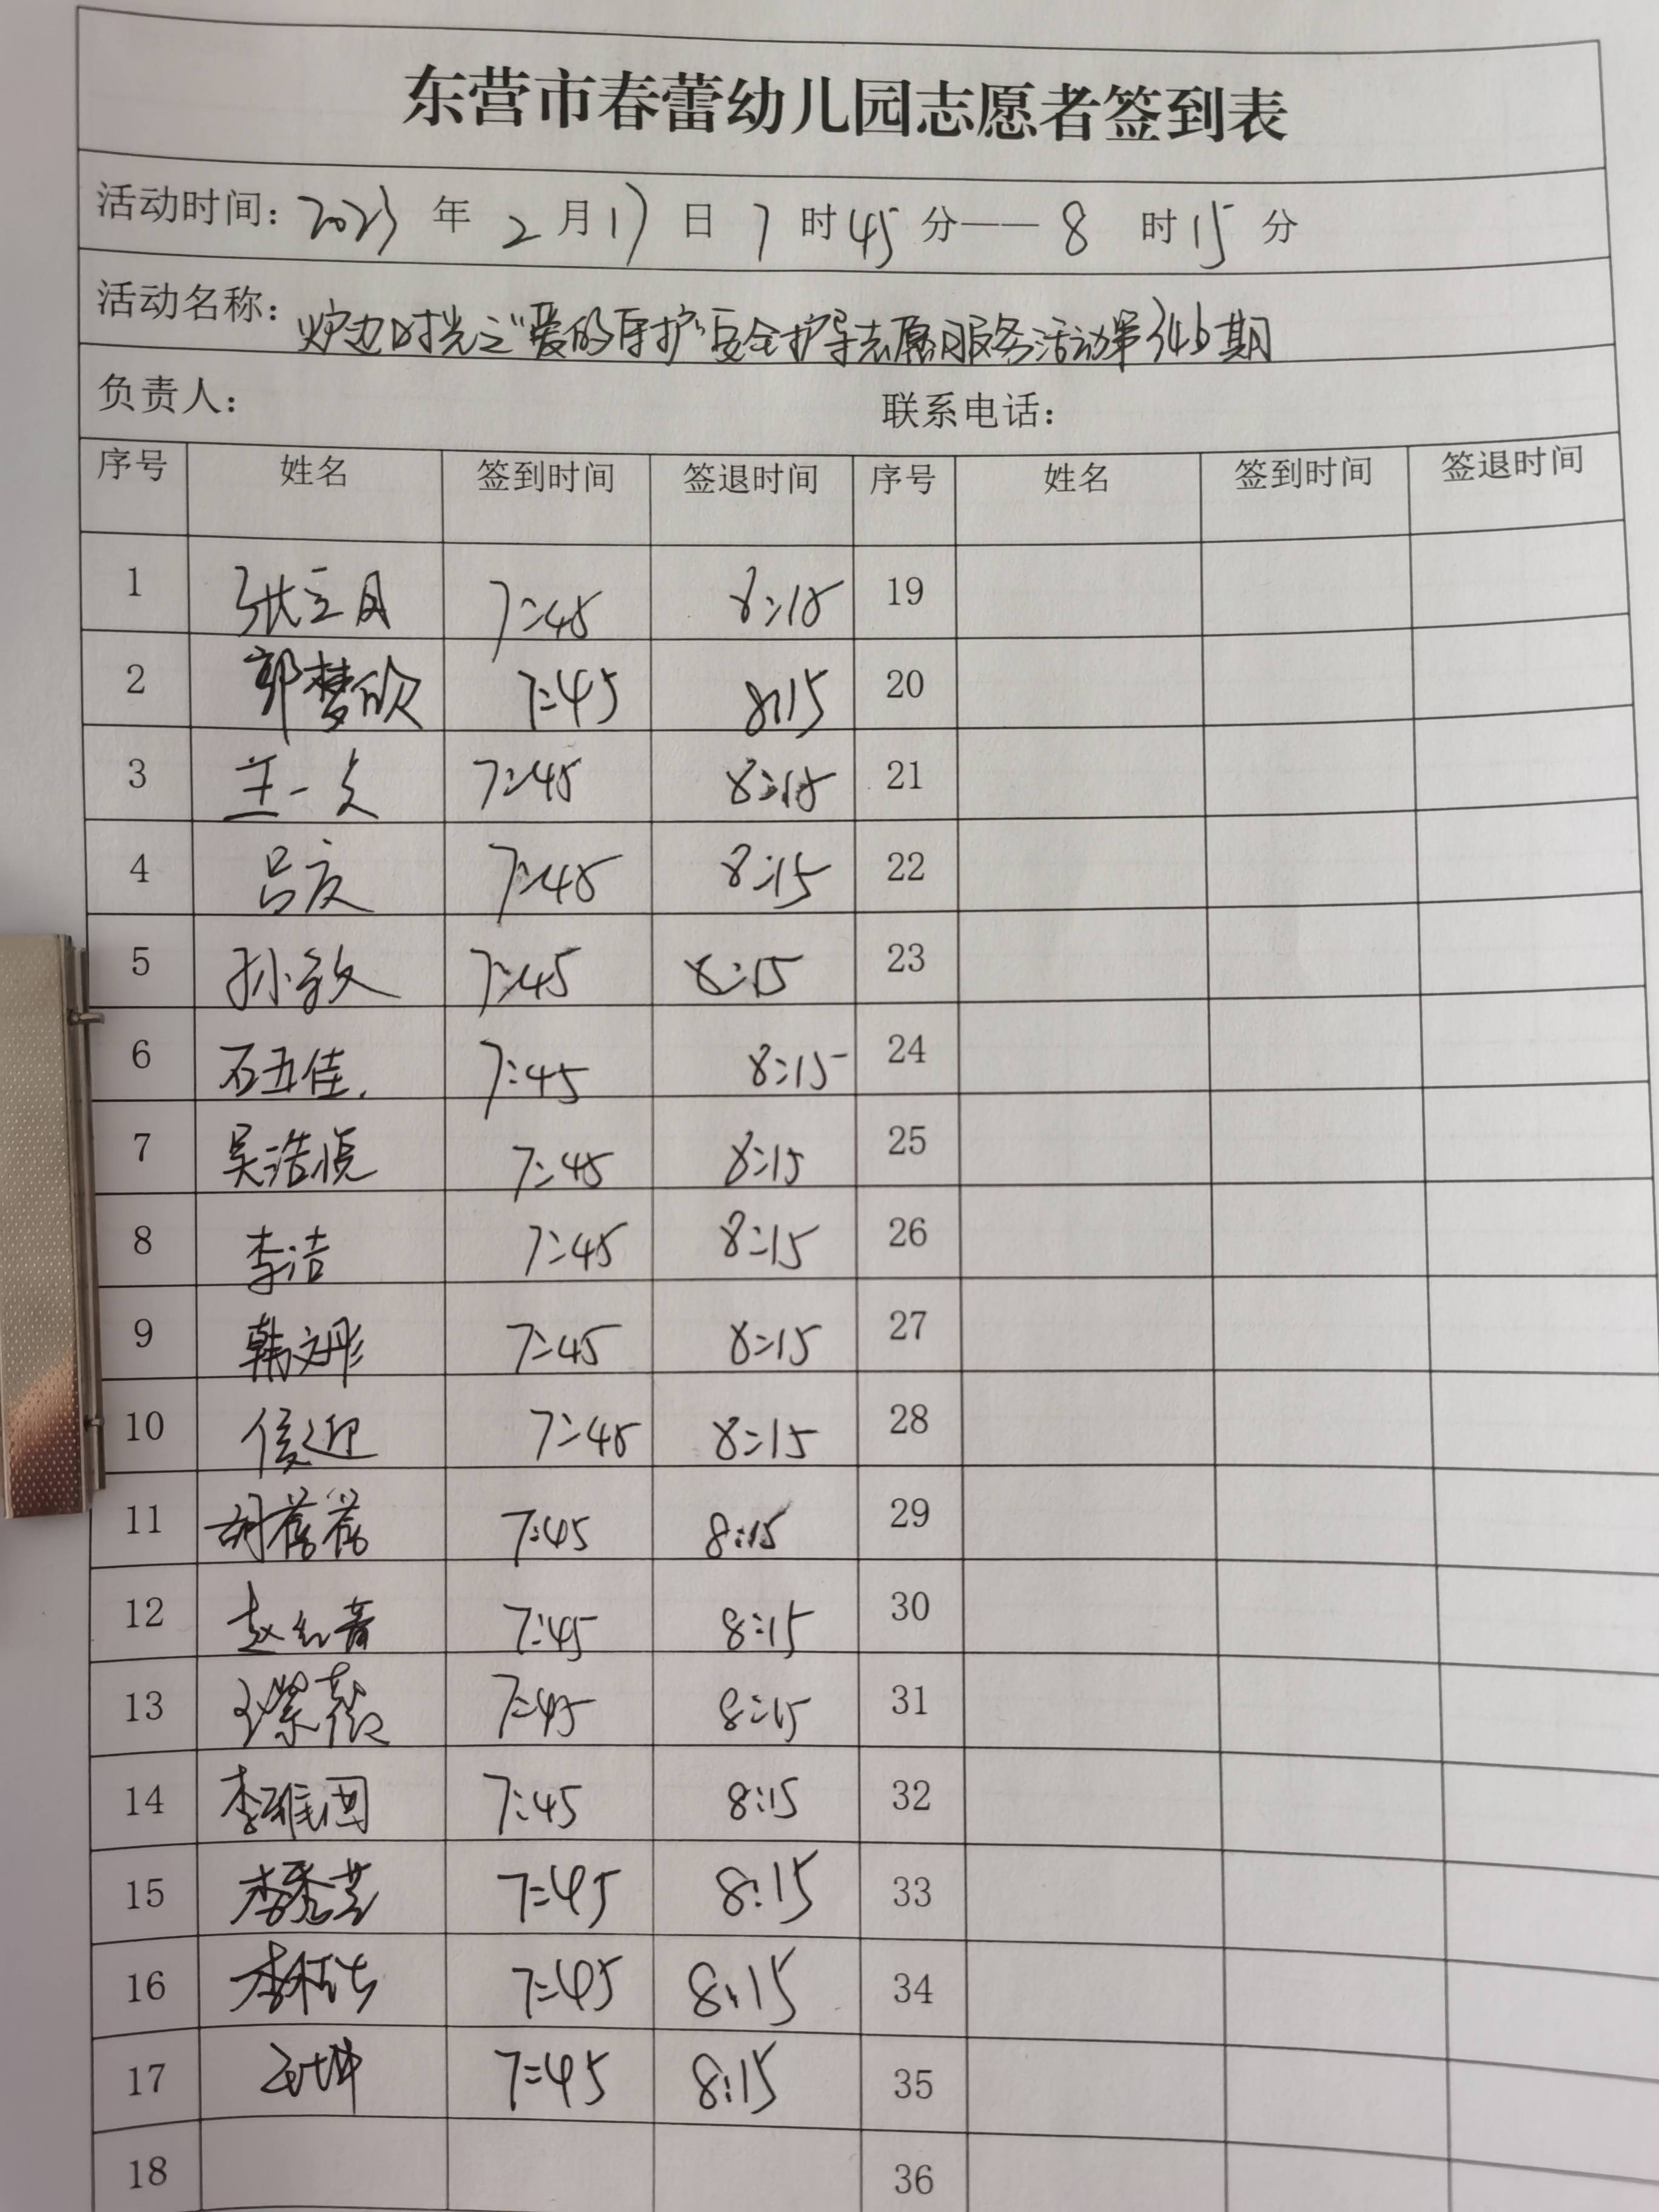 东营市春蕾幼儿园志愿者签到表
活动时间: 2023 年 2 月 17 日 7 时 45 分——8 时 15 分
活动名称: 炉边时光之“爱的守护”安全护导志愿服务活动第346期
负责人: 联系电话:
序号 姓名 签到时间 签退时间 序号 姓名 签到时间 签退时间
1 张立月 7:45 8:15 19
2 郭梦欣 7:45 8:15 20
3 王一文 7:45 8:15 21
4 吕 7:45 8:15 22
5 孙敏 7:45 8:15 23
6 石丑佳. 7:45 8:15 24
7 吴浩悦 7:45 8:15 25
8 李洁 7:45 8:15 26
9 韩文彤 7:45 8:15 27
10 侯迎 7:45 8:15 28
11 胡蓓蓓 7:45 8:15 29
12 赵红菁 7:45 8:15 30
13 王紫薇 7:45 8:15 31
14 李雅 7:45 8:15 32
15 李秀芸 7:45 8:15 33
16 李 7:45 8:15 34
17 坤 7:45 8:15 35
18 36